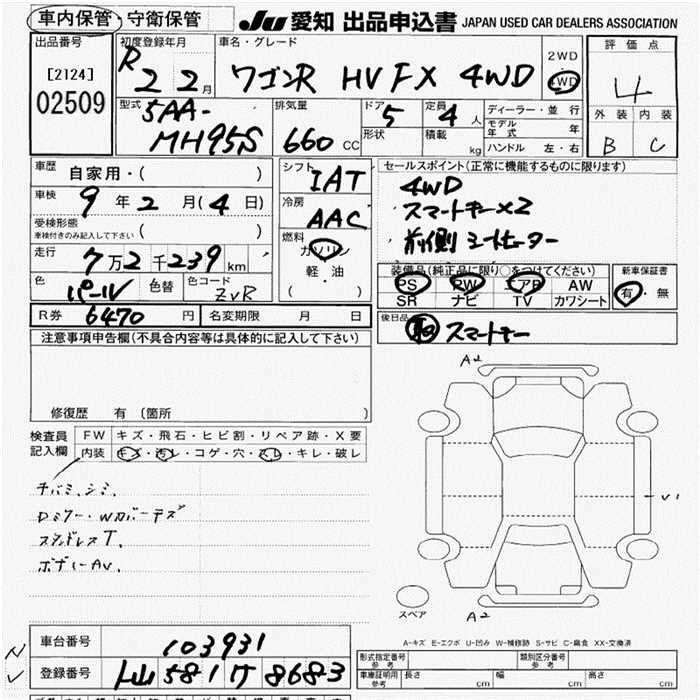 車内保管・守衛保管 JU 愛知 出品申込書 JAPAN USED CAR DEALERS ASSOCIATION
出品番号 [2124] 02509
初度登録年月 R 2 2月
車名・グレード ワゴンR HV FX 4WD
2WD 4WD
評価点 4
外装 内装
B C
型式 5AA-MH95S
排気量 660 CC
ドア 5 定員 4人
形状 積載 kg
ディーラー・並行
モデル年式 年
ハンドル 左・右
車歴 自家用・( )
車検 9年2月(4日)
受検形態 車検付きのみ記入して下さい ( )
走行 7万2千239km
色 パール 色替 色コード ZVR
シフト IAT
冷房 AAC
燃料 ガソリン
軽・油
( )
セールスポイント(正常に機能するものに限ります)
4WD
スマートキー×2
前側 シートヒーター
装備品(純正品に限り○をつけてください)
PS PW エアB AW
SR ナビ TV カワシート
新車保証書
有・無
R券 6470円 名変期限 月 日
後日品 スマートキー
注意事項申告欄(不具合内容等は具体的に記入して下さい)
修復歴 有 (箇所 )
検査員記入欄
FW キズ・飛石・ヒビ割・リペア跡・X要
内装 キズ・汚レ・コゲ・穴・スレ・キレ・破レ
チバミ、シミ、
Dミラー・Wカバーキズ
ステンドレスT、
ボディーAU、
A2
U1
A2
スペア
A-キズ E-エクボ U-凹み W-補修跡 S-サビ C-腐食 XX-交換済
車台番号 103931
登録番号 581 8683
形式指定番号 参考 類別区分番号 参考
車庫証明用 参考 長さ cm 幅 cm 高さ cm